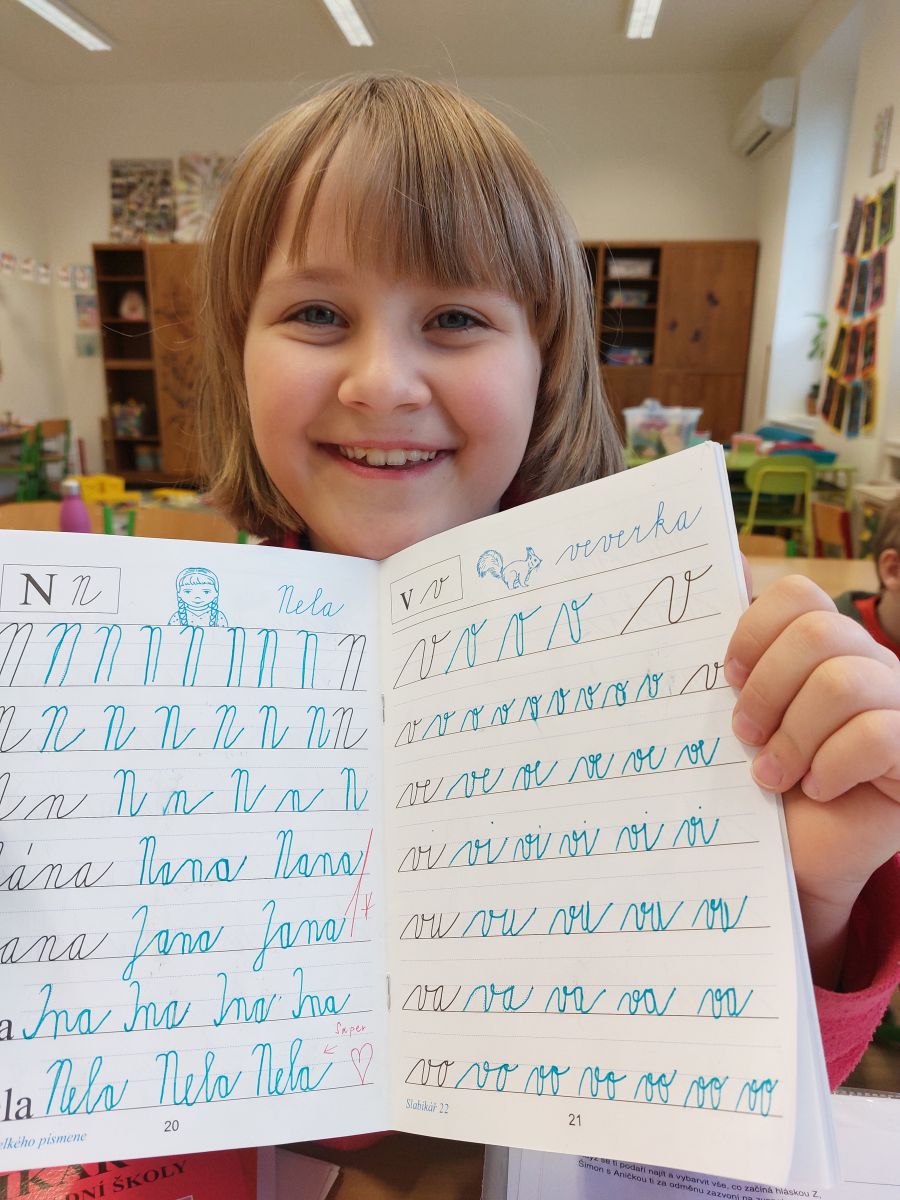 N n
Nela
N N N N N N N N N
N N N N N N N N
n N n N n N
ána Nana Nana
ana Jana Jana
a Ina Ina Ina Ina
Super
la Nela Nela Nela
elkého písmene
20
v v
veverka
v v v v v
v v v v v v v v v v
ve ve ve ve ve ve
vi vi vi vi vi vi
vu vu vu vu vu
va va va va va
vo vo vo vo vo vo vo
Slabikář 22
21
DNÍ ŠKOLY
se ti podaří najít a vybarvit vše, co začíná hláskou Z,
Šimon s Aničkou ti za odměnu zazvoní na